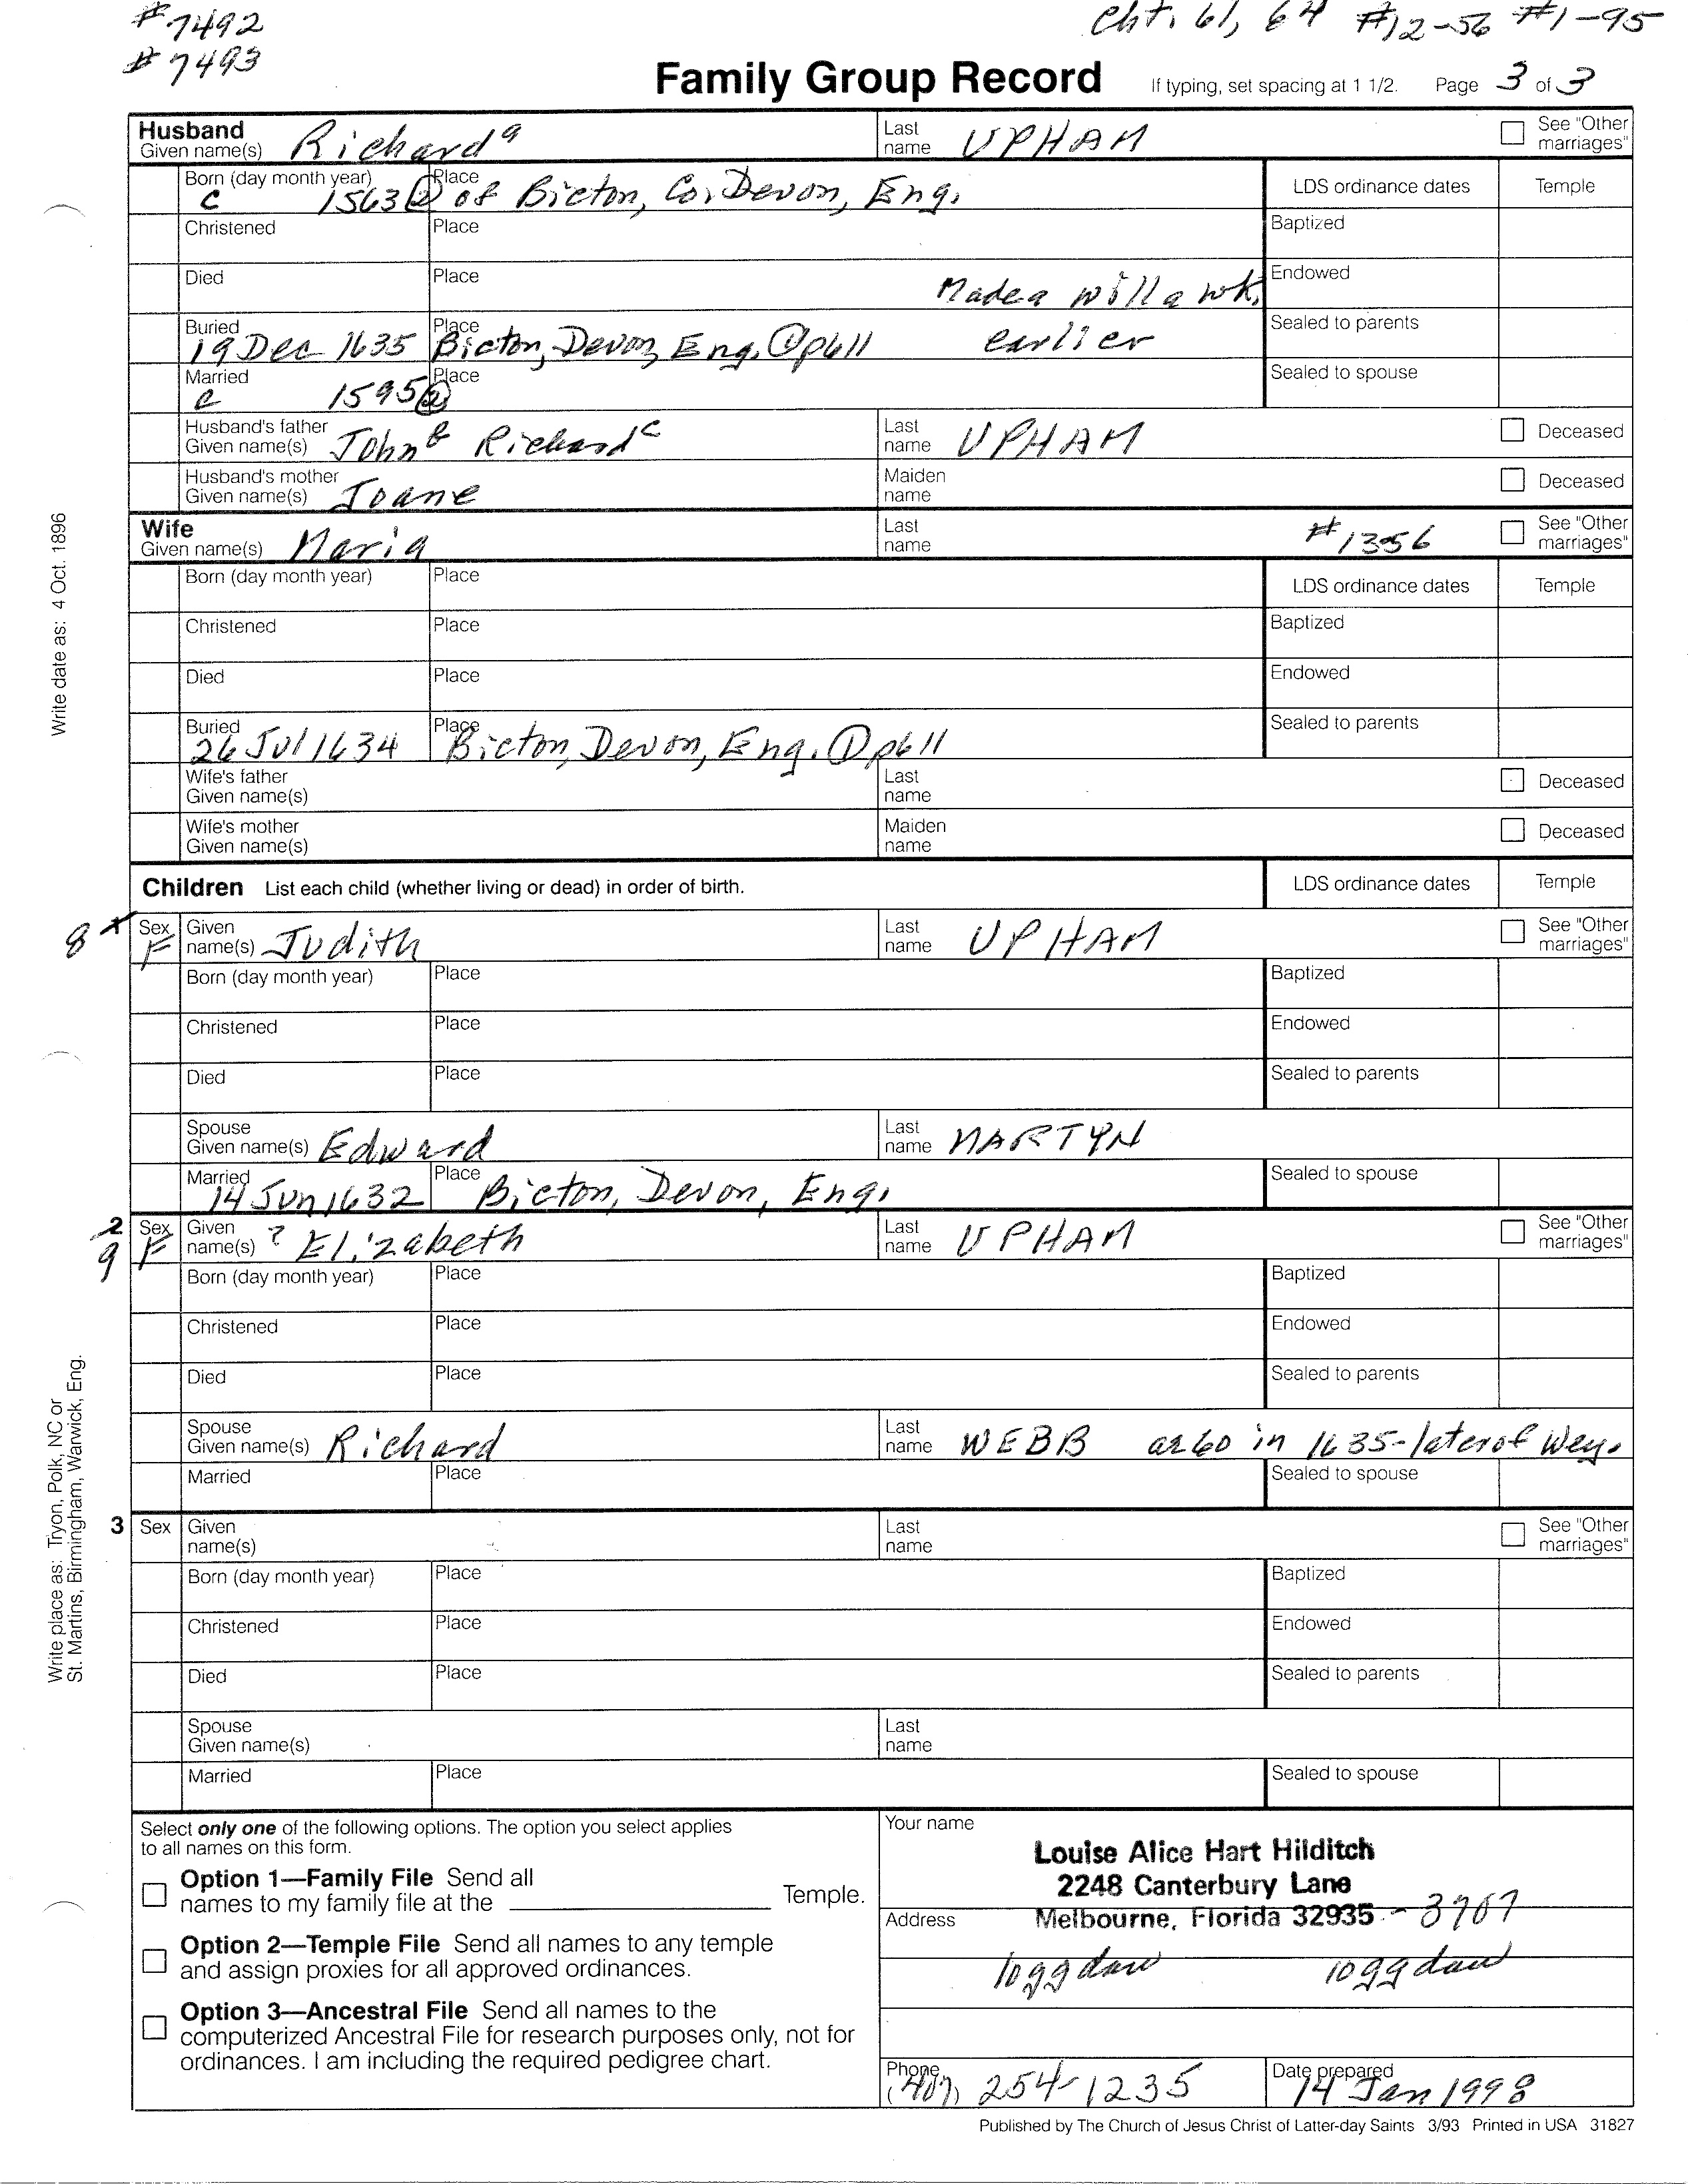 #7492
Cht. 61, 64 #12-56 #1-95
#7493
Family Group Record If typing, set spacing at 1 1/2. Page 3 of 3
Husband
Given name(s) Richard a Last name UPHAM See "Other marriages"
Born (day month year) c 1563 ② Place of Bicton, Co. Devon, Eng. LDS ordinance dates Temple
Christened Place Baptized
Died Place Endowed
Made a will a wk. earlier
Buried 19 Dec 1635 Place Bicton, Devon, Eng. ① p611 Sealed to parents
Married c 1595 ② Place Sealed to spouse
Husband's father
Given name(s) John b Richard c Last name UPHAM Deceased
Husband's mother
Given name(s) Joane Maiden name Deceased
Wife
Given name(s) Maria Last name #1356 See "Other marriages"
Born (day month year) Place LDS ordinance dates Temple
Christened Place Baptized
Died Place Endowed
Buried 26 Jul 1634 Place Bicton, Devon, Eng. ① p611 Sealed to parents
Wife's father
Given name(s) Last name Deceased
Wife's mother
Given name(s) Maiden name Deceased
Children List each child (whether living or dead) in order of birth. LDS ordinance dates Temple
8 Sex F Given name(s) Judith Last name UPHAM See "Other marriages"
Born (day month year) Place Baptized
Christened Place Endowed
Died Place Sealed to parents
Spouse
Given name(s) Edward Last name MARTYN
Married 14 Jun 1632 Place Bicton, Devon, Eng. Sealed to spouse
2 9 Sex F Given name(s) ? Elizabeth Last name UPHAM See "Other marriages"
Born (day month year) Place Baptized
Christened Place Endowed
Died Place Sealed to parents
Spouse
Given name(s) Richard Last name WEBB ae 60 in 1635-later of Wey.
Married Place Sealed to spouse
3 Sex Given name(s) Last name See "Other marriages"
Born (day month year) Place Baptized
Christened Place Endowed
Died Place Sealed to parents
Spouse
Given name(s) Last name
Married Place Sealed to spouse
Select only one of the following options. The option you select applies
to all names on this form.
Option 1—Family File Send all
names to my family file at the Temple.
Option 2—Temple File Send all names to any temple
and assign proxies for all approved ordinances.
Option 3—Ancestral File Send all names to the
computerized Ancestral File for research purposes only, not for
ordinances. I am including the required pedigree chart.
Your name
Louise Alice Hart Hilditch
2248 Canterbury Lane
Address Melbourne, Florida 32935 - 3707
10ggdau 10ggdau
Phone (407) 254-1235 Date prepared 14 Jan 1998
Published by The Church of Jesus Christ of Latter-day Saints 3/93 Printed in USA 31827
Write date as: 4 Oct. 1896
Write place as: Tryon, Polk, NC or
St. Martins, Birmingham, Warwick, Eng.